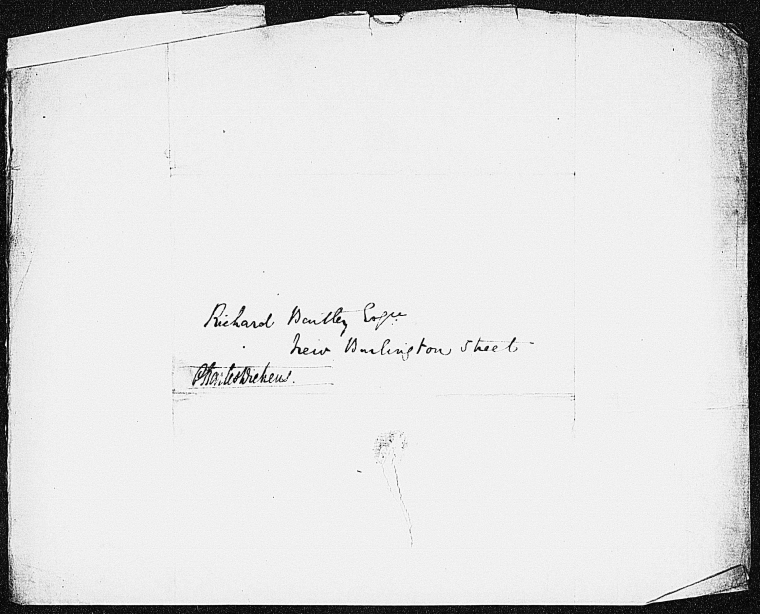 Richard Bentley Esqre
New Burlington Street
Charles Dickens.